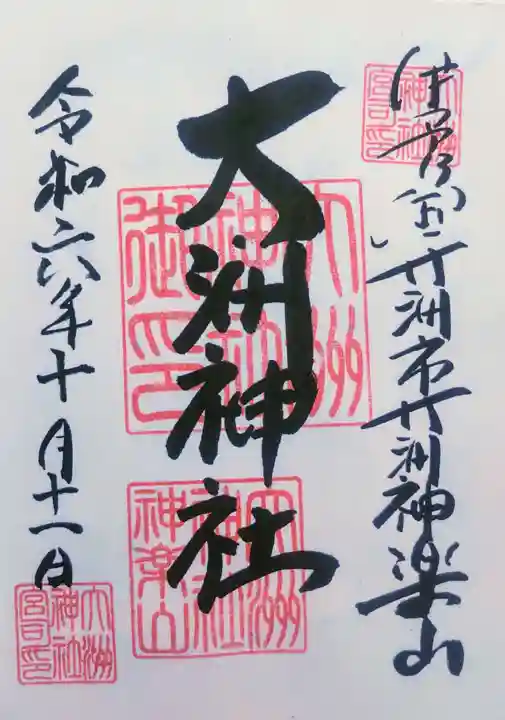 大洲市大洲神楽山
大洲神社
令和六年十月十一日
大洲
神社
宮司印
大洲
神社
御印
大洲
神社
神楽山
大洲
神社
宮司印